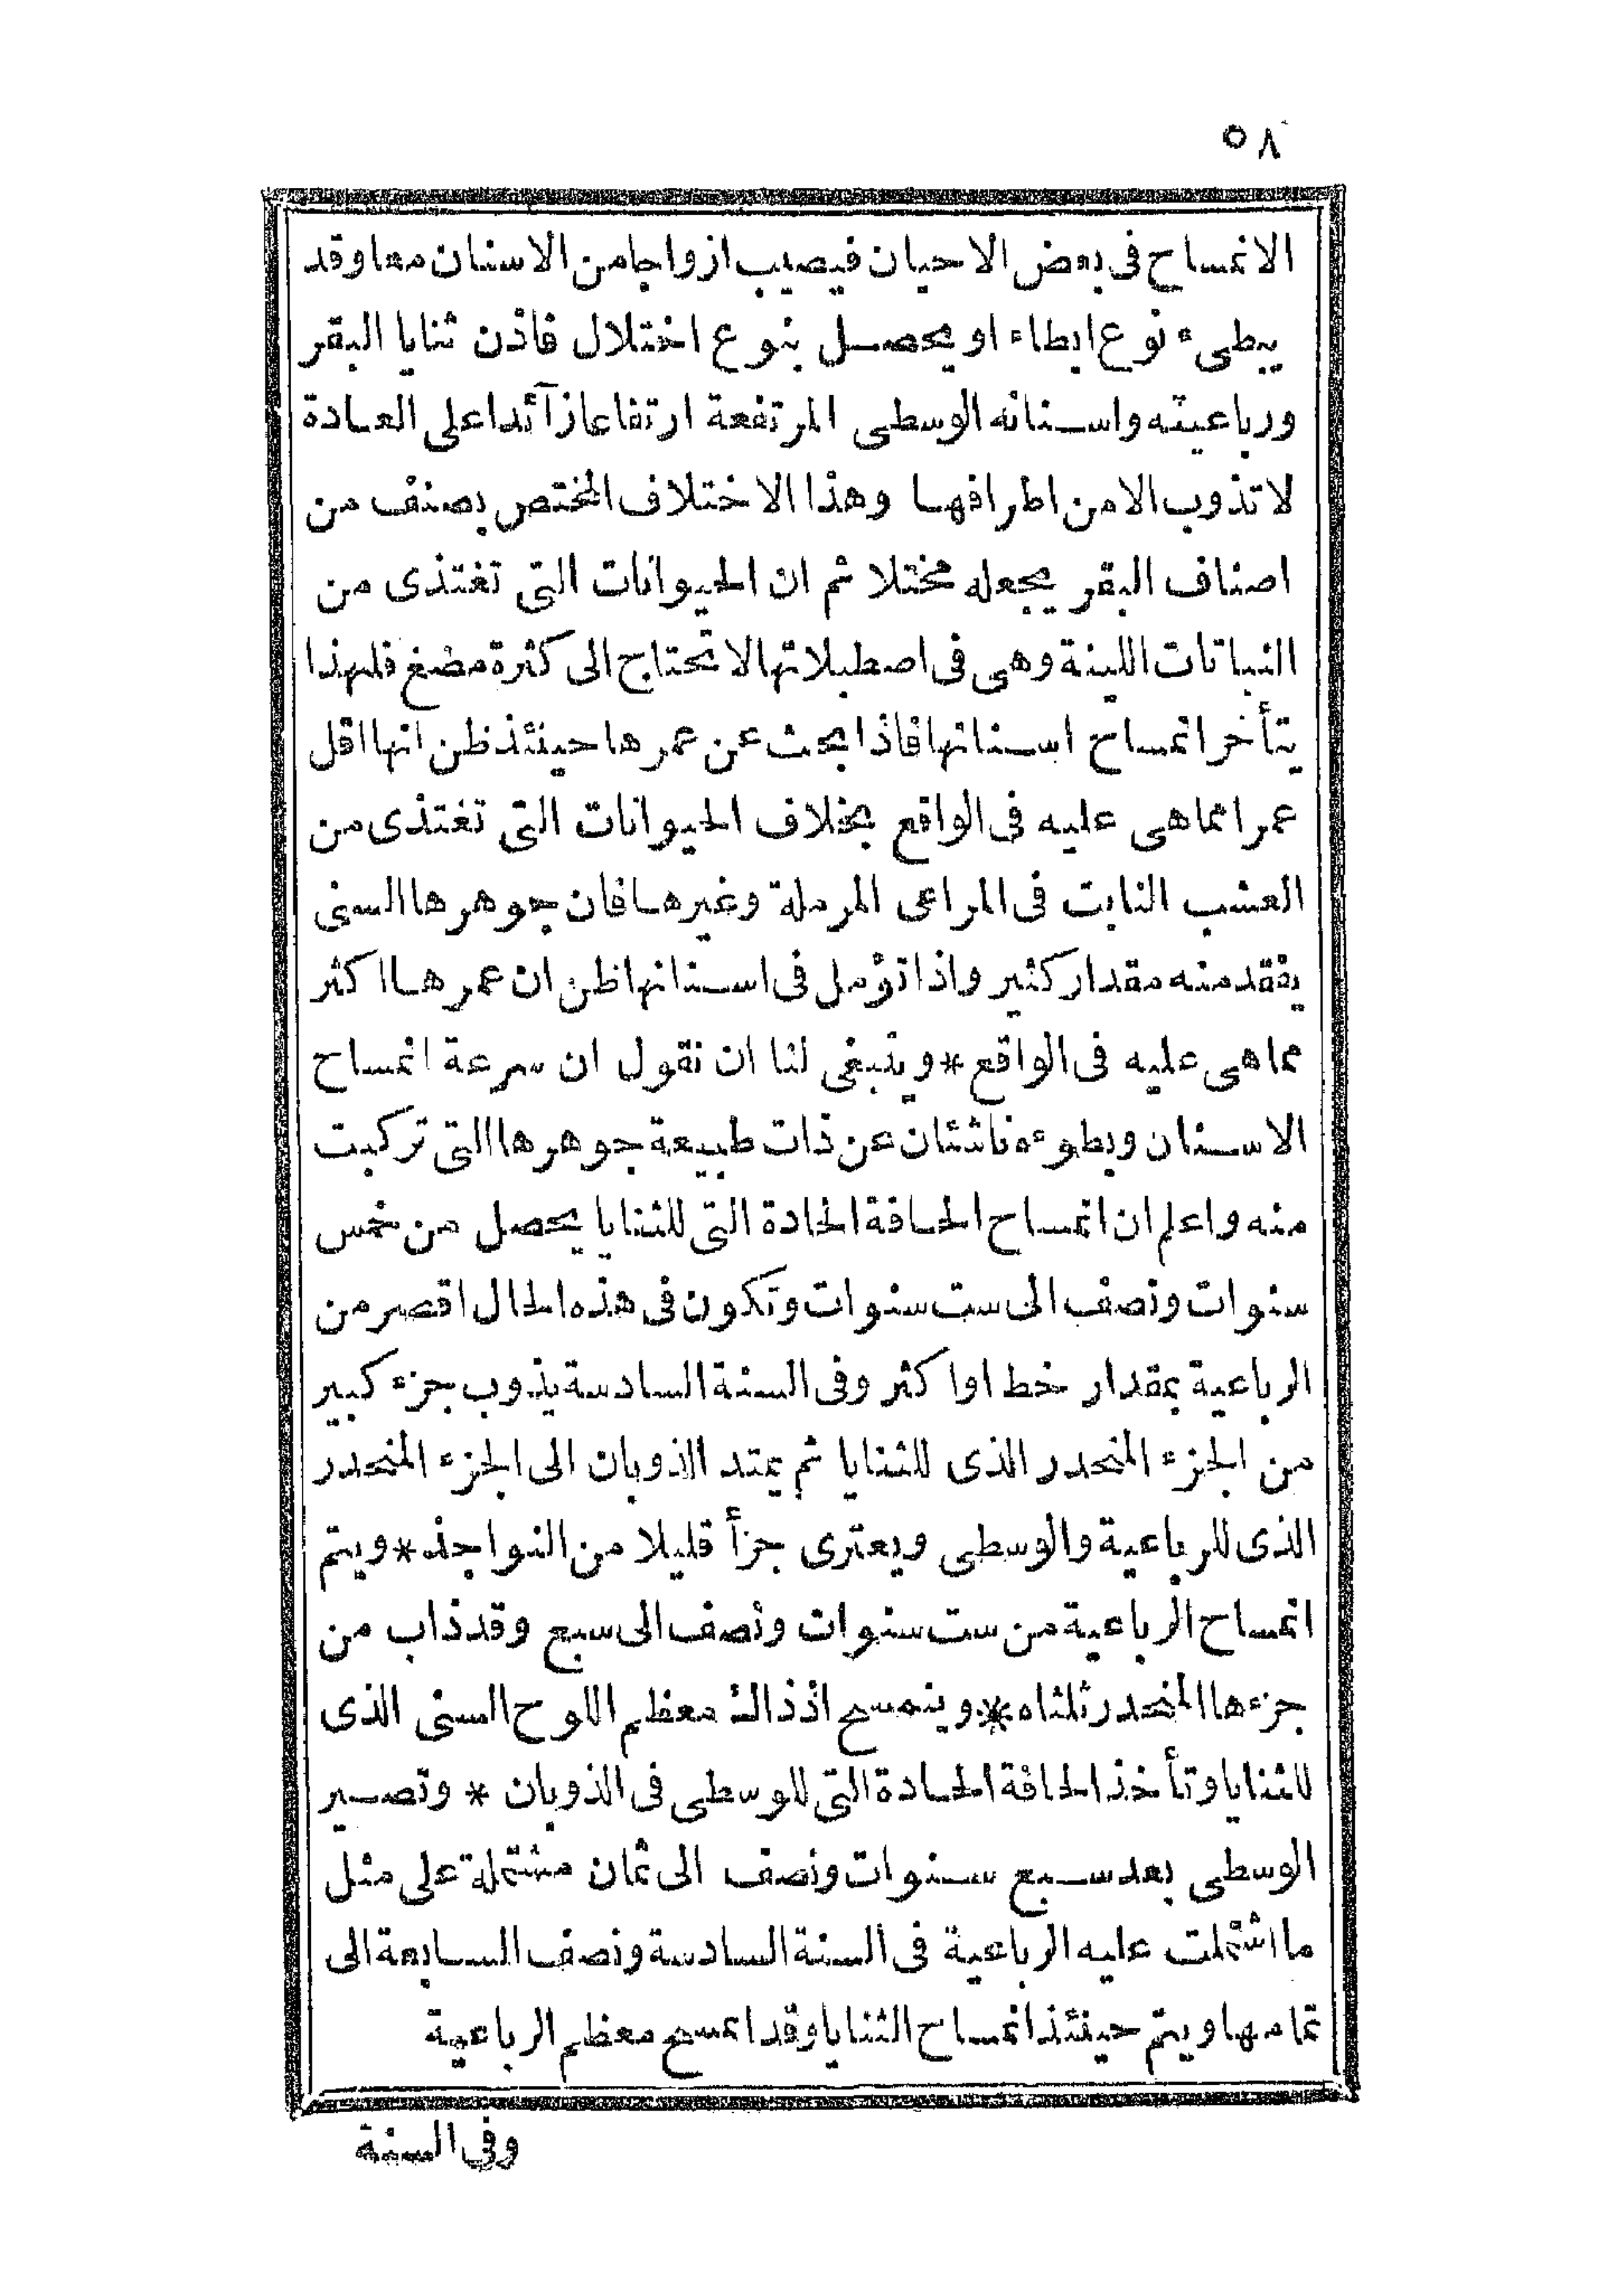 ٥٨
الانمساح فى بعض الاحيان فيصيب ازواجا من الاسنان معا وقد
يبطىء نوع ابطاء او يحصل بنوع اختلال فاذن ثنايا البقر
ورباعيته واسنانه الوسطى المرتفعة ارتفاعا زآئدا على العادة
لا تذوب الا من اطرافها وهذا الاختلاف المختص بصنف من
اصناف البقر يجعله مختلا ثم ان الحيوانات التى تغتذى من
النباتات اللينة وهى فى اصطبلاتها لا تحتاج الى كثرة مضغ فلهذا
يتأخر انمساح اسنانها فاذا بحث عن عمرها حينئذ ظن انها اقل
عمرا مما هى عليه فى الواقع بخلاف الحيوانات التى تغتذى من
العشب النابت فى المراعى المرملة وغيرها فان جوهرها السنى
يفقد منه مقدار كثير واذا تؤمل فى اسنانها ظن ان عمرها اكثر
مما هى عليه فى الواقع * وينبغى لنا ان نقول ان سرعة انمساح
الاسنان وبطوءه ناشئان عن ذات طبيعة جوهرها التى تركبت
منه واعلم ان انمساح الحافة الحادة التى للثنايا يحصل من خمس
سنوات ونصف الى ست سنوات وتكون فى هذه الحال اقصر من
الرباعية بمقدار خط او اكثر وفى السنة السادسة يذوب جزء كبير
من الجزء المنحدر الذى للثنايا ثم يمتد الذوبان الى الجزء المنحدر
الذى للرباعية والوسطى ويعترى جزأ قليلا من النواجذ * ويتم
انمساح الرباعية من ست سنوات ونصف الى سبع وقد ذاب من
جزءها المنحدر ثلثاه * وينمسح اذ ذاك معظم اللوح السنى الذى
للثنايا وتأخذ الحافة الحادة التى للوسطى فى الذوبان * وتصير
الوسطى بعد سبع سنوات ونصف الى ثمان مشتملة على مثل
ما اشتملت عليه الرباعية فى السنة السادسة ونصف السابعة الى
تمامها ويتم حينئذ انمساح الثنايا وقد انمسح معظم الرباعية
وفى السنة